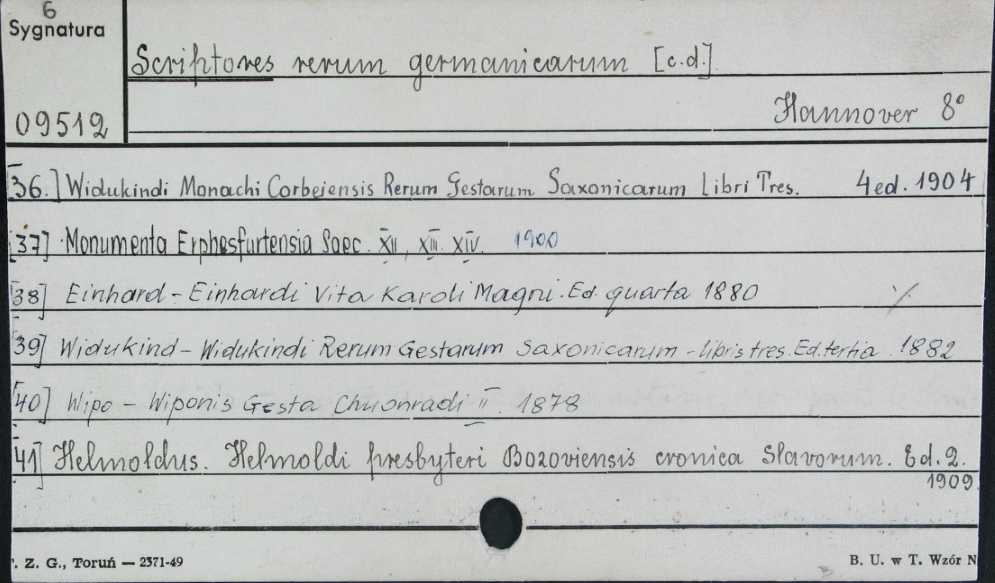 6
Sygnatura
Scriptores rerum germanicarum [c.d.]
Hannover 8°
09512
[36.] Widukindi Monachi Corbeiensis Rerum Gestarum Saxonicarum Libri Tres. 4 ed. 1904
[37] Monumenta Erphesfurtensia Saec. XII, XIII. XIV. 1900
[38] Einhard - Einhardi Vita Karoli Magni. Ed. quarta 1880
[39] Widukind - Widukindi Rerum Gestarum Saxonicarum - libris tres. Ed. tertia. 1882
[40] Wipo - Wiponis Gesta Chuonradi II. 1878
[41] Helmoldus. Helmoldi presbyteri Bozoviensis cronica Slavorum. Ed. 2.
1909
. Z. G., Toruń — 2371-49
B. U. w T. Wzór N